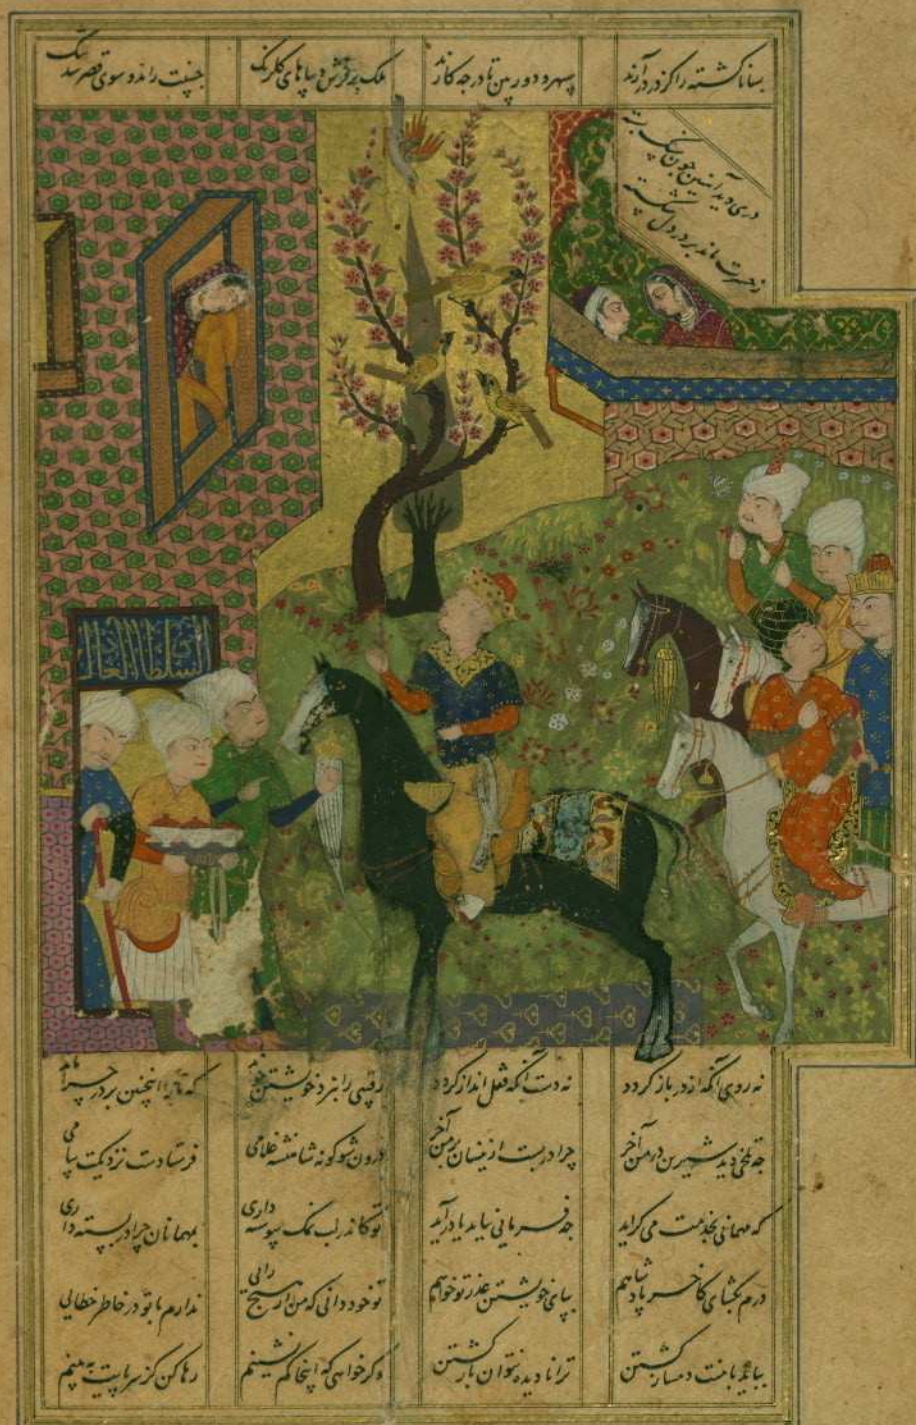 بسا ناکشته را کز در درآرند سپهر و دور بین تا در چه کارند ملک بر فرش دیباهای گلرنگ جنیبت راند و سوی قصر شد تنگ
دری دید آهنین چون سنگ بسته
ز حیرت ماند بر در دل شکسته
السلطان العادل
نه روی آنکه از در باز گردد نه دست آنکه قفل انداز گردد رقیبی را بنزد خویشتن خواند که ما را اینچنین بر در چرا ماند
چه تلخی دید شیرین در من آخر چرا در بست ازینسان بر من آخر درون شو گو نه شاهنشه غلامی فرستادست نزدیکت پیامی
که مهمانی بخدمت می گراید چه فرمایی نیاید یا درآید تو کاندر لب نمک پیوسته داری بمهمانان چرا در بسته داری
درم بگشای کاخر پادشاهم بپای خویشتن عذر تو خواهم تو خود دانی که من از هیچ رایی ندارم با تو در خاطر خطایی
بباید با منت دمساز گشتن ترا نادیده نتوان باز گشتن وگر خواهی که اینجا کم نشینم رها کن کز سر پایت ببینم